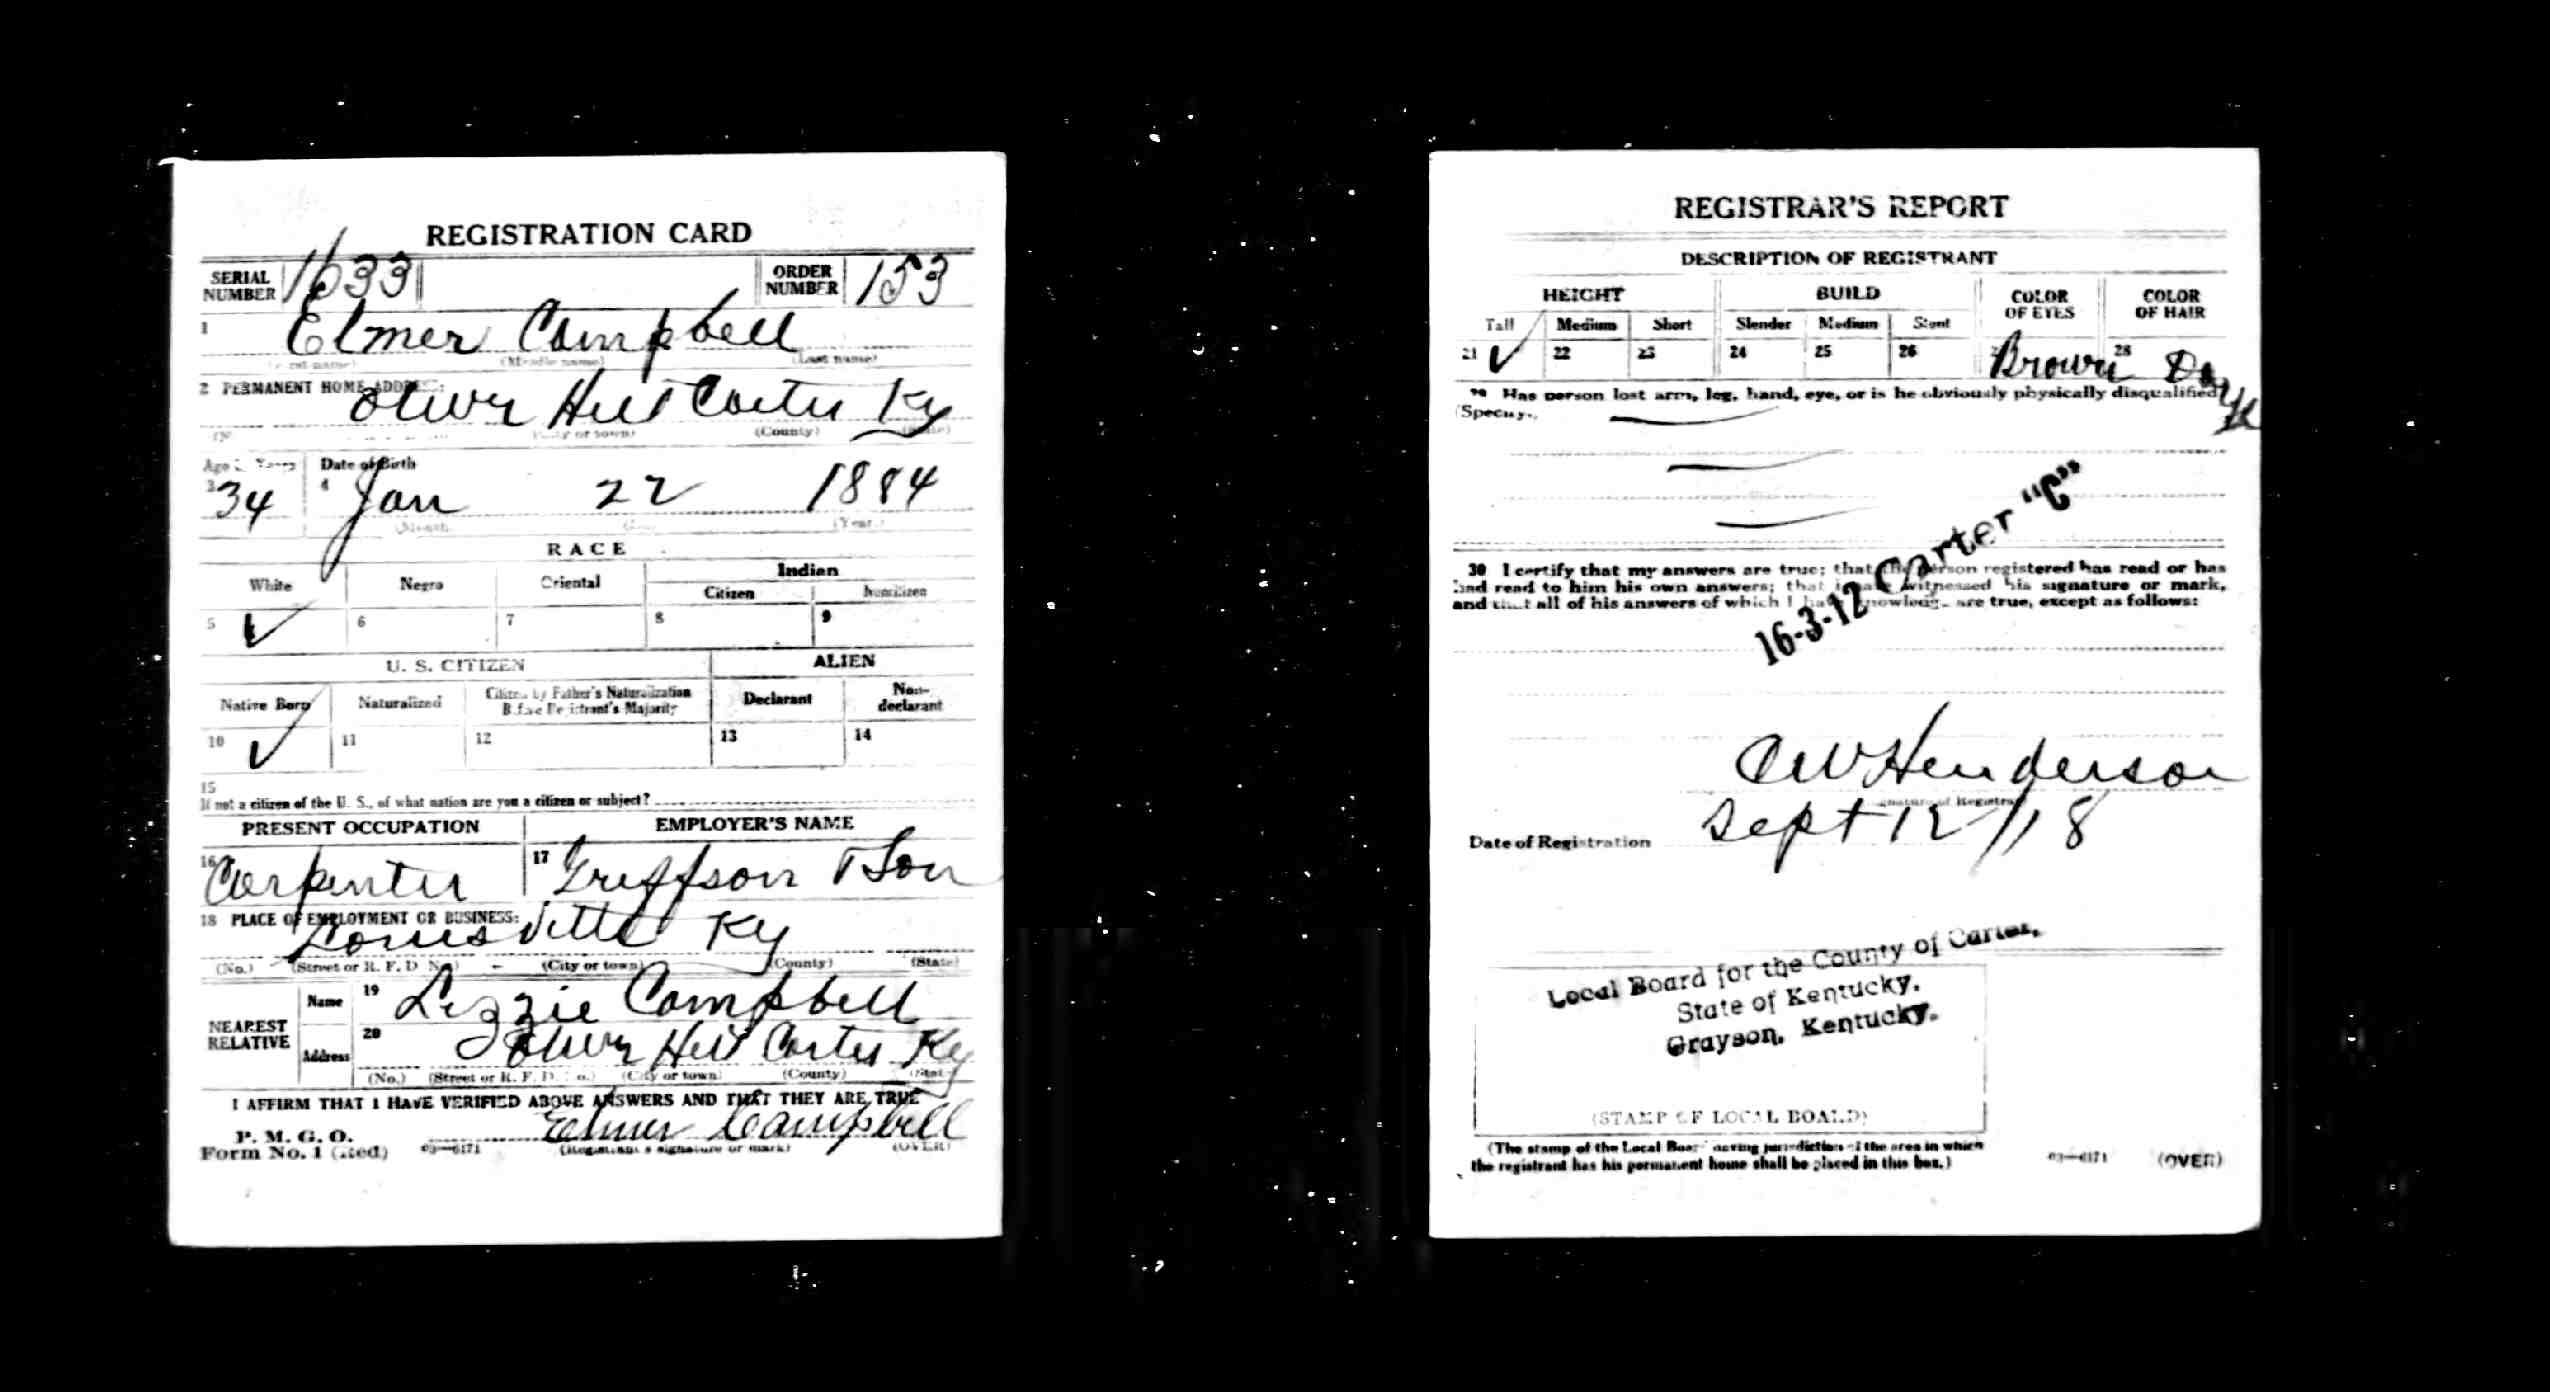 REGISTRATION CARD
SERIAL NUMBER 1633 ORDER NUMBER 153
1 Elmer Campbell
(Middle name) (Last name)
2 PERMANENT HOME ADDRESS:
Olive Hill Carter Ky
(County)
Age in Years Date of Birth
3 34 4 Jan 22 1884
(Month) (Year)
RACE
White Negro Oriental Indian
Citizen Noncitizen
5 ✓ 6 7 8 9
U. S. CITIZEN ALIEN
Native Born Naturalized Citizen by Father's Naturalization Before Registrant's Majority Declarant Non-declarant
10 ✓ 11 12 13 14
15
If not a citizen of the U. S., of what nation are you a citizen or subject?
PRESENT OCCUPATION EMPLOYER'S NAME
16 Carpenter 17 & Son
18 PLACE OF EMPLOYMENT OR BUSINESS:
Louisville Ky
(No.) (Street or R. F. D. No.) (City or town) (County) (State)
NEAREST RELATIVE
Name 19 Lizzie Campbell
Address 20 Olive Hill Carter Ky
(No.) (Street or R. F. D. No.) (City or town) (County) (State)
I AFFIRM THAT I HAVE VERIFIED ABOVE ANSWERS AND THAT THEY ARE TRUE
Elmer Campbell
P. M. G. O.
Form No. 1 (Red) 03—6171 (Registrant's signature or mark) (OVER)
REGISTRAR'S REPORT
DESCRIPTION OF REGISTRANT
HEIGHT BUILD COLOR OF EYES COLOR OF HAIR
Tall Medium Short Slender Medium Stout
21 ✓ 22 23 24 25 26 Brown 28 Dark
29 Has person lost arm, leg, hand, eye, or is he obviously physically disqualified?
(Specify.)
16-3-12 Carter "C"
30 I certify that my answers are true; that the person registered has read or has
had read to him his own answers; that I have witnessed his signature or mark,
and that all of his answers of which I have knowledge are true, except as follows:
C W Henderson
(Signature of Registrar)
Date of Registration Sept 12 / 18
Local Board for the County of Carter,
State of Kentucky.
Grayson, Kentucky.
(STAMP OF LOCAL BOARD)
(The stamp of the Local Board having jurisdiction of the area in which
the registrant has his permanent home shall be placed in this box.)
03—6171 (OVER)